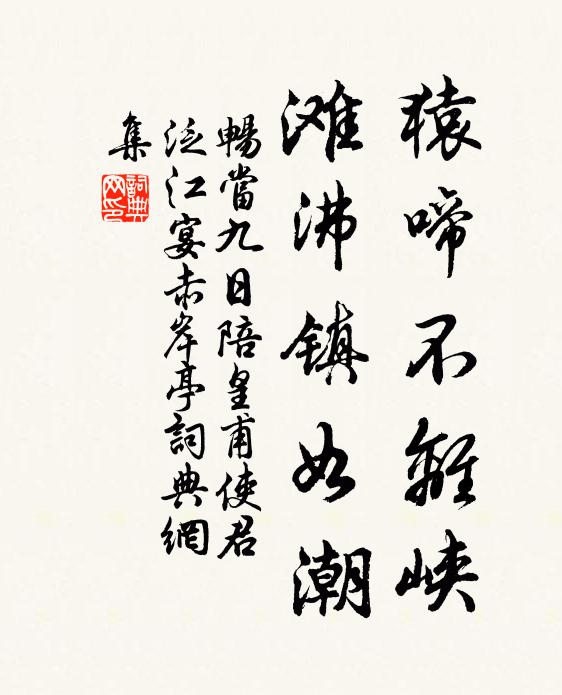 猿啼不離峡
滩沸镇如潮
暢當九日陪皇甫使君
泛江宴赤岸亭詞典網
集
詞典網印